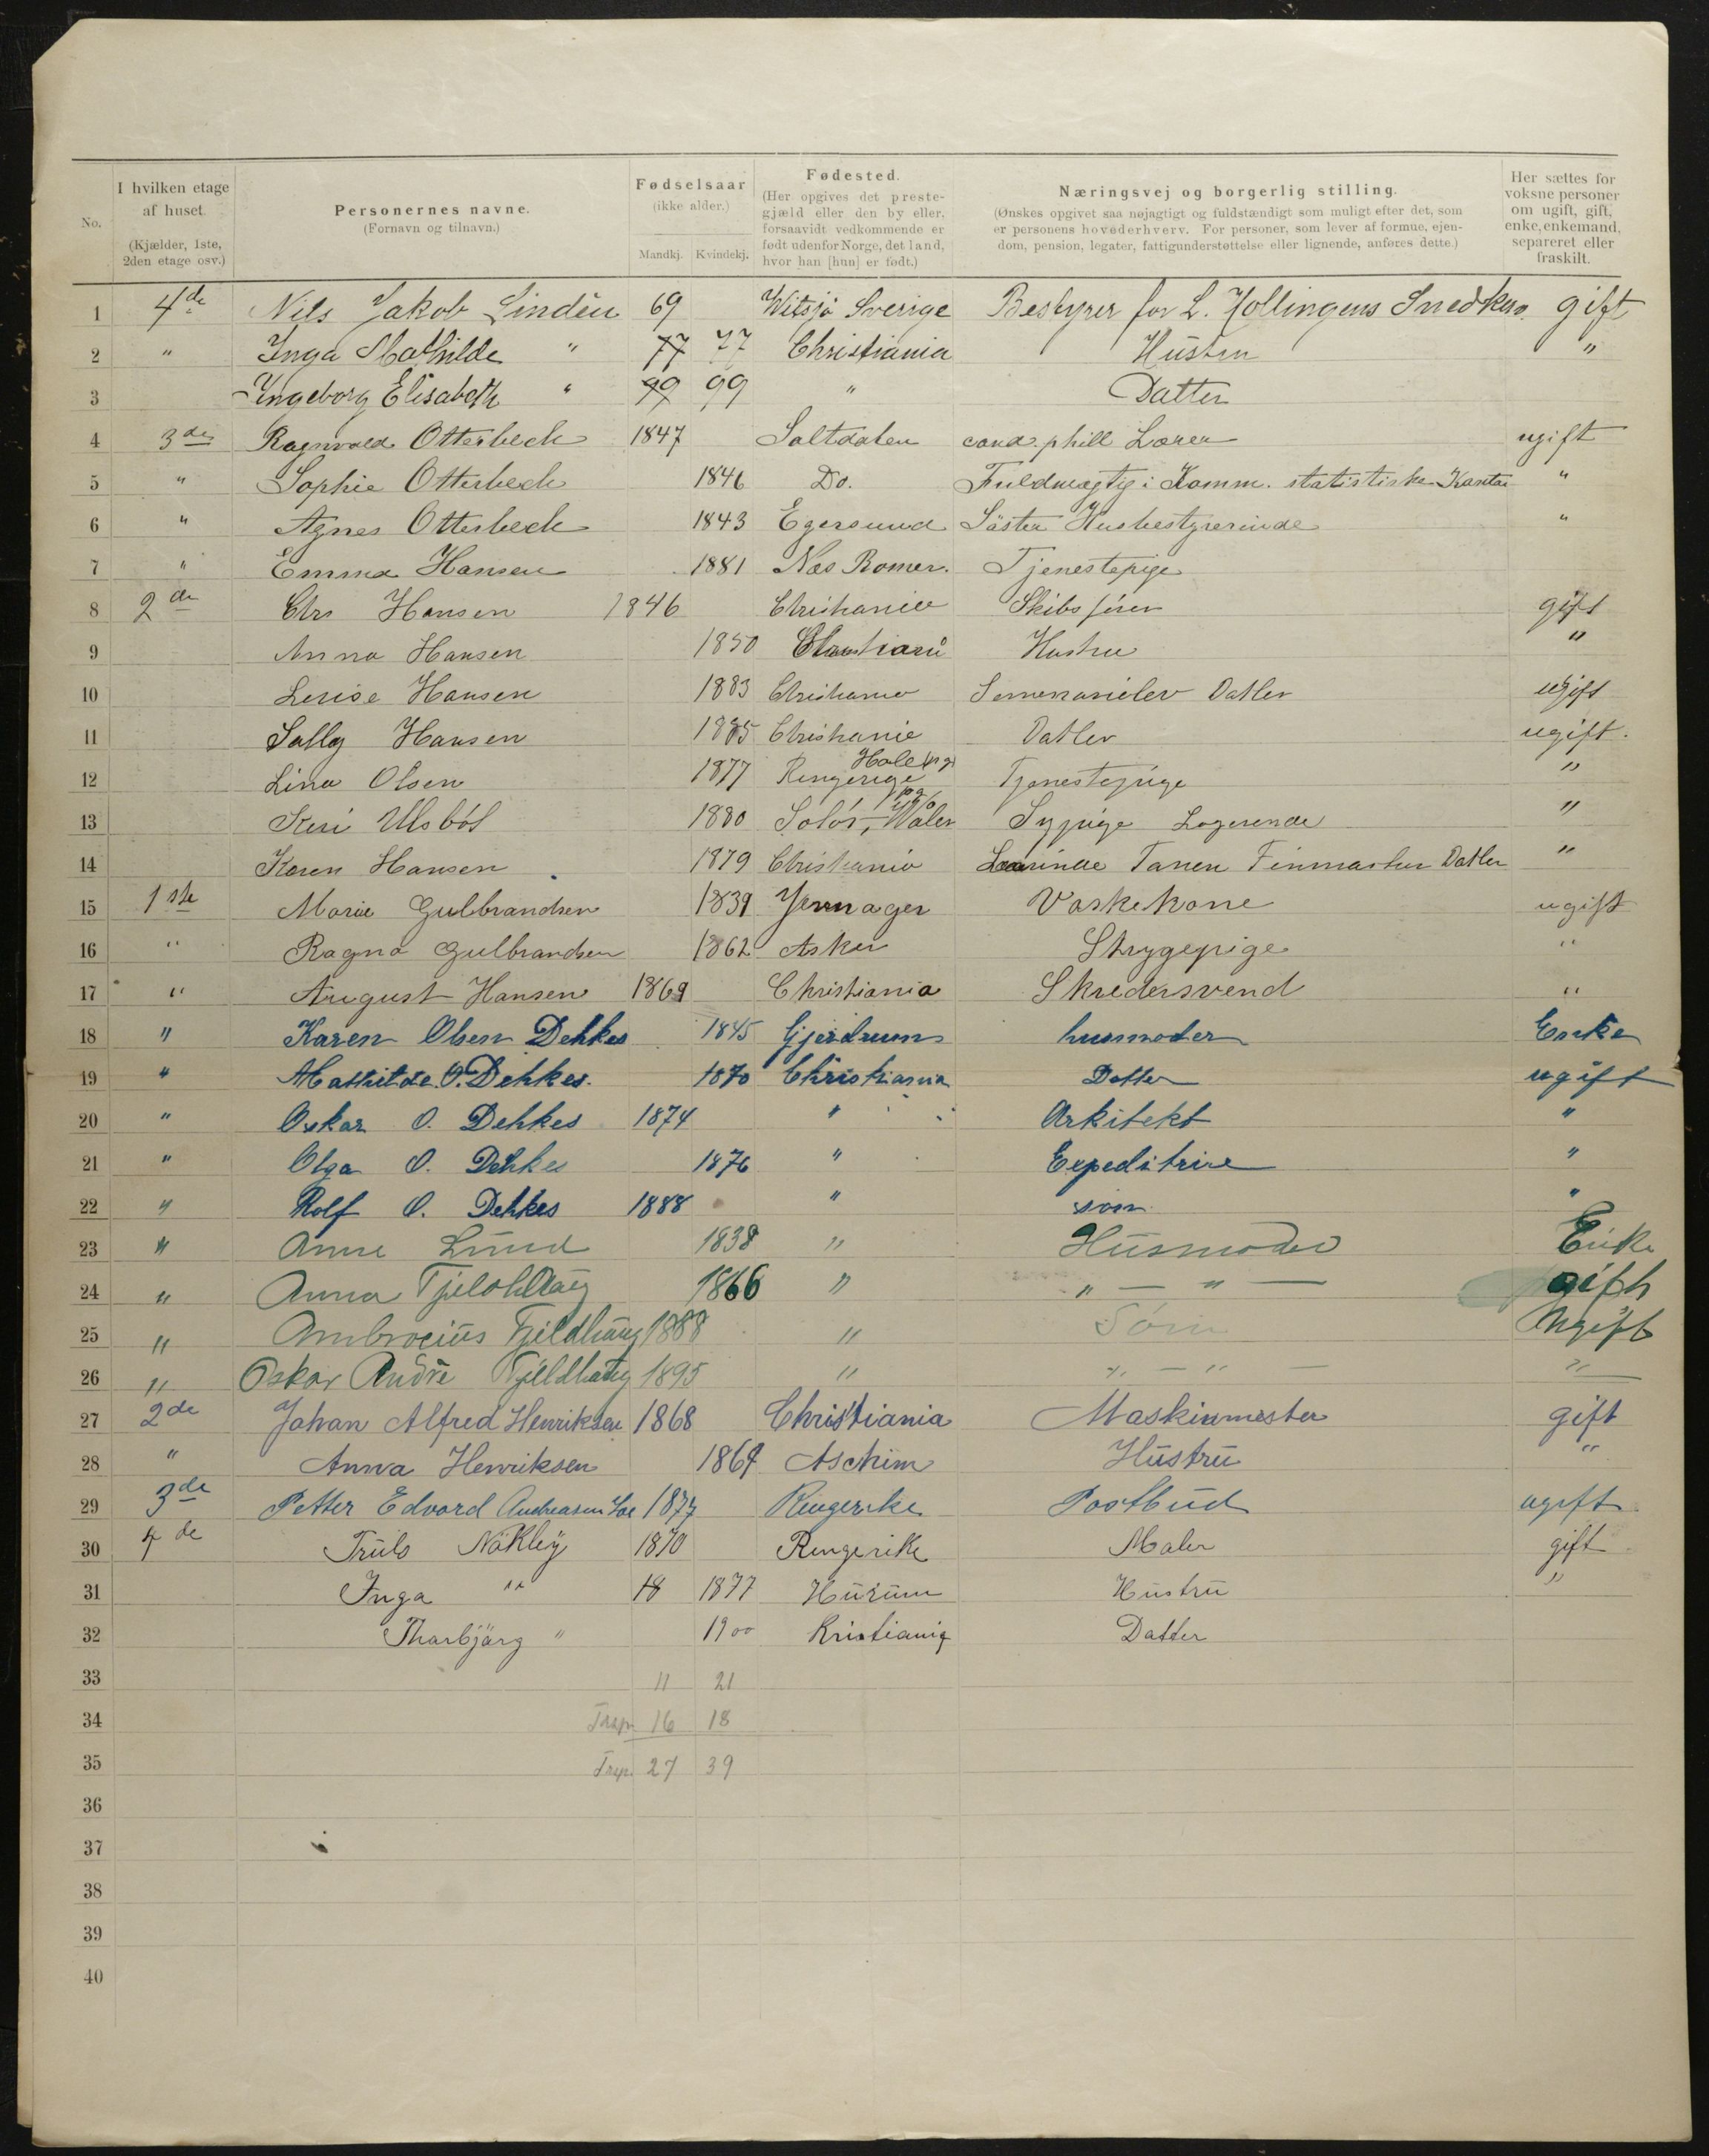 No. I hvilken etage af huset. (Kjælder, 1ste, 2den etage osv.) Personernes navne. (Fornavn og tilnavn.) Fødselsaar (ikke alder.) Mandkj. Kvindekj. Fødested. (Her opgives det prestegjæld eller den by eller, forsaavidt vedkommende er født udenfor Norge, det land, hvor han [hun] er født.) Næringsvej og borgerlig stilling. (Ønskes opgivet saa nøjagtigt og fuldstændigt som muligt efter det, som er personens hovederhverv. For personer, som lever af formue, ejendom, pension, legater, fattigunderstøttelse eller lignende, anføres dette.) Her sættes for voksne personer om ugift, gift, enke, enkemand, separeret eller fraskilt.
1 4de Nils Jakob Lindén 69 Witsjö Sverige Bestyrer for L. Hollingens gift
2 " Inga Mathilde " 77 77 Christiania Hustru "
3 Ingeborg Elisabeth " 99 99 " Datter
4 3de Ragnvald Otterbech 1847 Saltdalen cand. phill Lærer ugift
5 " Sophie Otterbech 1846 Do. Fuldmægtig i Komm. statistiske Kontor "
6 " Agnes Otterbech 1843 Egersund Söster Husbestyrerinde "
7 " Emma Hansen 1881 Næs Romer. Tjenestepige
8 2de Chr Hansen 1846 Christiania Skibsfører gift
9 Anna Hansen 1850 Christiania Hustru "
10 Lovise Hansen 1883 Christiania Datter ugift
11 Sally Hansen 1885 Christiania Datter ugift.
12 Lina Olsen 1877 Ringerige Hole Tjenestepige "
13 Keri Ulsböl 1880 Solör, Våler Sypige Logerende "
14 Karen Hansen 1879 Christiania Lærinde Tanen Finmarken Datter "
15 1ste Marie Gulbrandsen 1839 Jevnager Vaskekone ugift
16 " Ragna Gulbrandsen 1862 Asker Strygepige "
17 " August Hansen 1869 Christiania Skredersvend "
18 " Karen Olsen Dehkes 1845 Gjerdrum husmoder Enke
19 " Mathilde O. Dehkes. 1870 Christiania Datter ugift
20 " Oskar O. Dehkes 1874 " Arkitekt "
21 " Olga O. Dehkes 1876 " Expeditrise "
22 " Rolf O. Dehkes 1888 " søn "
23 " Anne Lund 1838 " Husmoder Enke
24 " Anna Fjeldhaug 1866 " " — " — gift
25 " Ambrocius Fjeldhaug 1888 " Sön Ungift
26 " Oskar André Fjeldhaug 1895 " " — " — "
27 2de Johan Alfred Henriksen 1868 Christiania Maskinmester gift
28 " Anna Henriksen 1869 Aschim Hustru "
29 3de Petter Edvard Andreasen Loe 1877 Ringerike Postbud ugift
30 4de Truls Näkley 1870 Ringerike Maler gift
31 Inga " 18 1877 Hurum Hustru "
32 Thorbjörg " 1900 Kristiania Datter
33 11 21
34 Trsp. 16 18
35 Trsp. 27 39
36
37
38
39
40